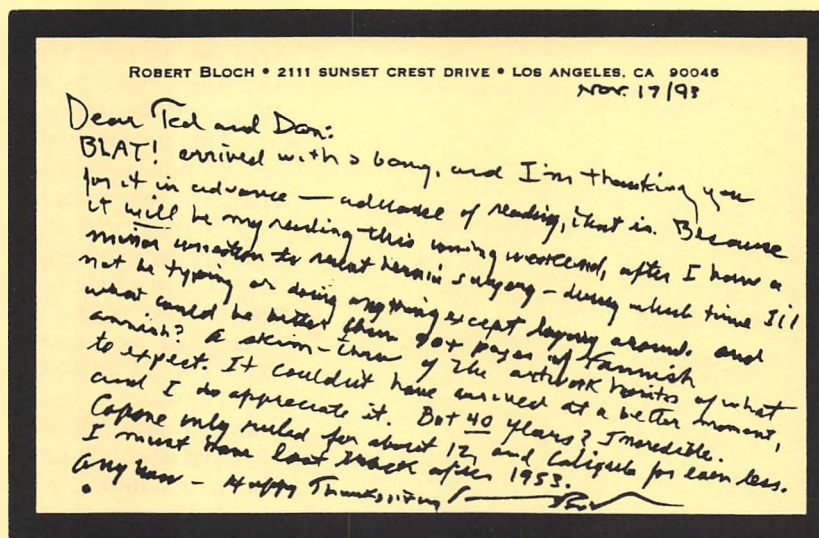 ROBERT BLOCH • 2111 SUNSET CREST DRIVE • LOS ANGELES, CA 90046
Nov. 17/93
Dear Ted and Dan:
BLAT! arrived with a bang, and I'm thanking you
for it in advance — advance of reading, that is. Because
it will be my reading this coming weekend, after I have a
minor correction to recent hernia surgery — during which time I'll
not be typing or doing anything except laying around. and
what could be better than 90+ pages of Fannish
annish? A skim-thru of the artwork hints of what
to expect. It couldn't have arrived at a better moment,
and I do appreciate it. But 40 years? Incredible.
Capone only ruled for about 12, and Caligula for even less.
I must have lost track after 1953.
Anyhow — Happy Thanksgiving
Bob